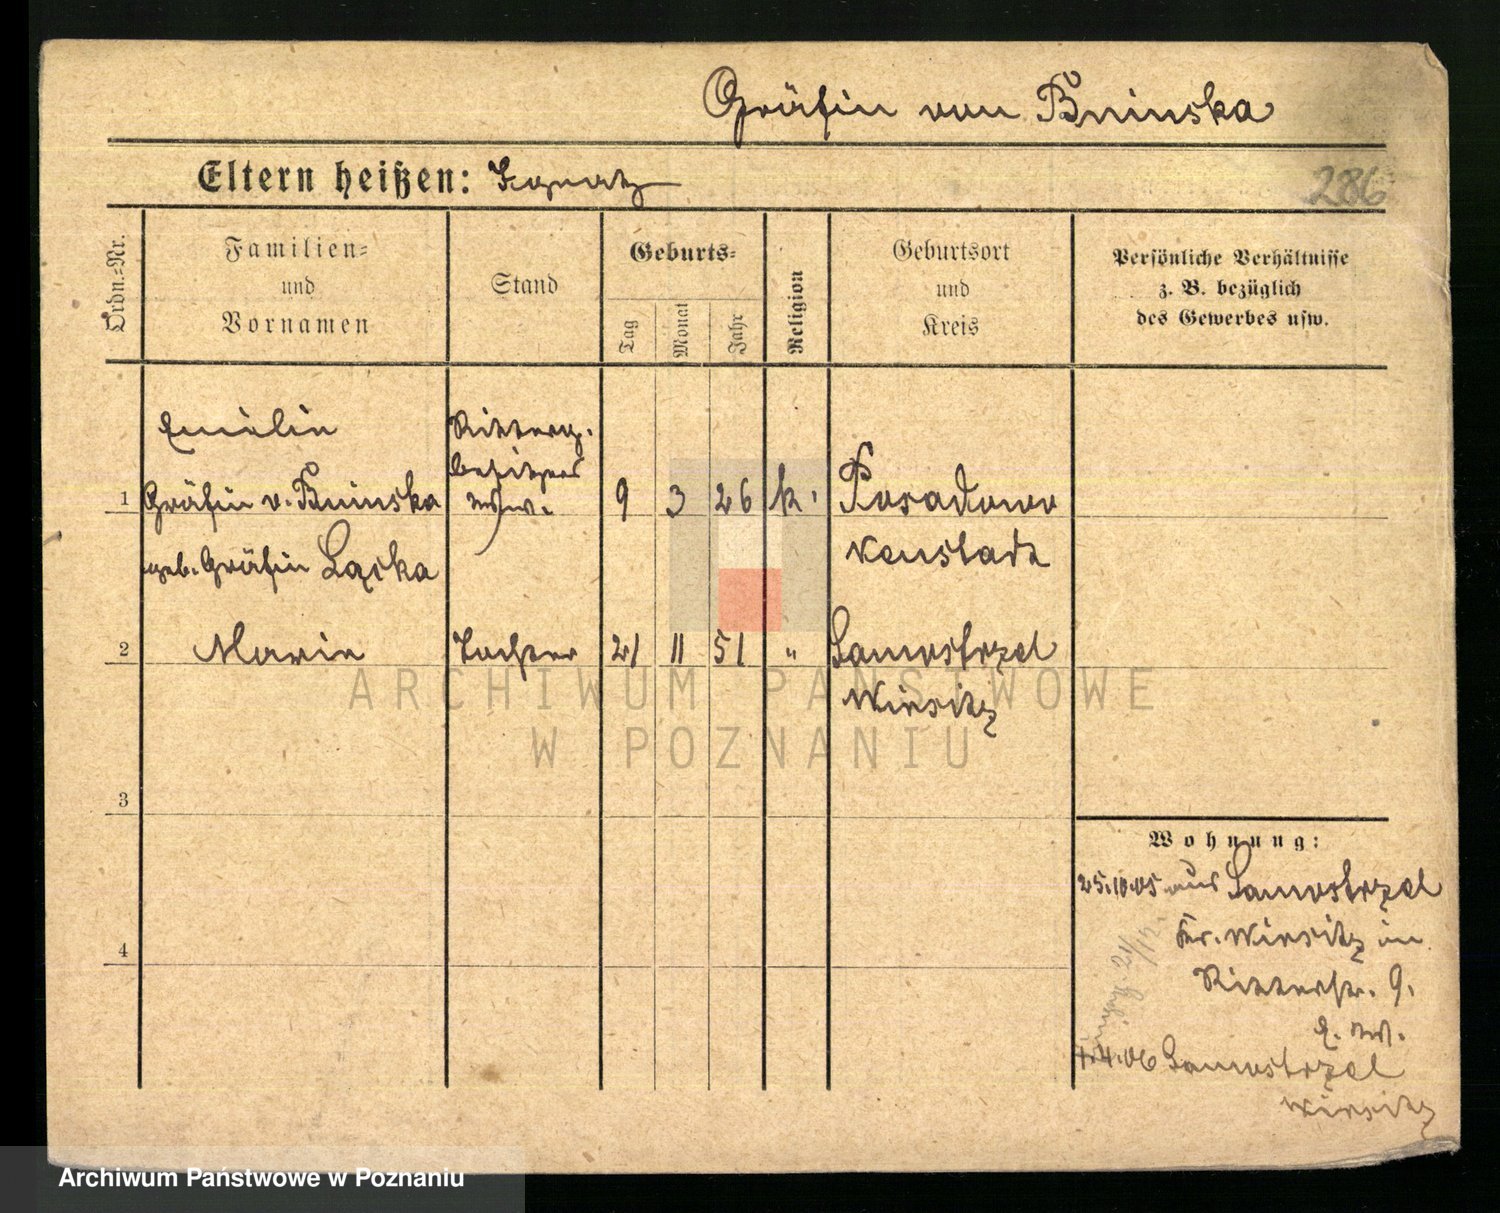 Gräfin von Bninska
Eltern heißen: Ignatz
286
Ordn.-Nr.
Familien-
und
Vornamen
Stand
Geburts-
Tag
Monat
Jahr
Religion
Geburtsort
und
Kreis
Persönliche Verhältnisse
z. B. bezüglich
des Gewerbes usw.
Emilie
Ritterg.
besitzers
1 Gräfin v. Bninska Ww. 9 3 26 k. Posadowo
geb. Gräfin Łącka Neustadt
2 Marie Tochter 21 11 51 " Samostrzel
Wirsitz
ARCHIWUM PAŃSTWOWE
W POZNANIU
3
Wohnung:
25.10.05 aus Samostrzel
Kr. Wirsitz in
4
Ritterstr. 9.
E. W.
4.06 Samostrzel
Wirsitz
Archiwum Państwowe w Poznaniu